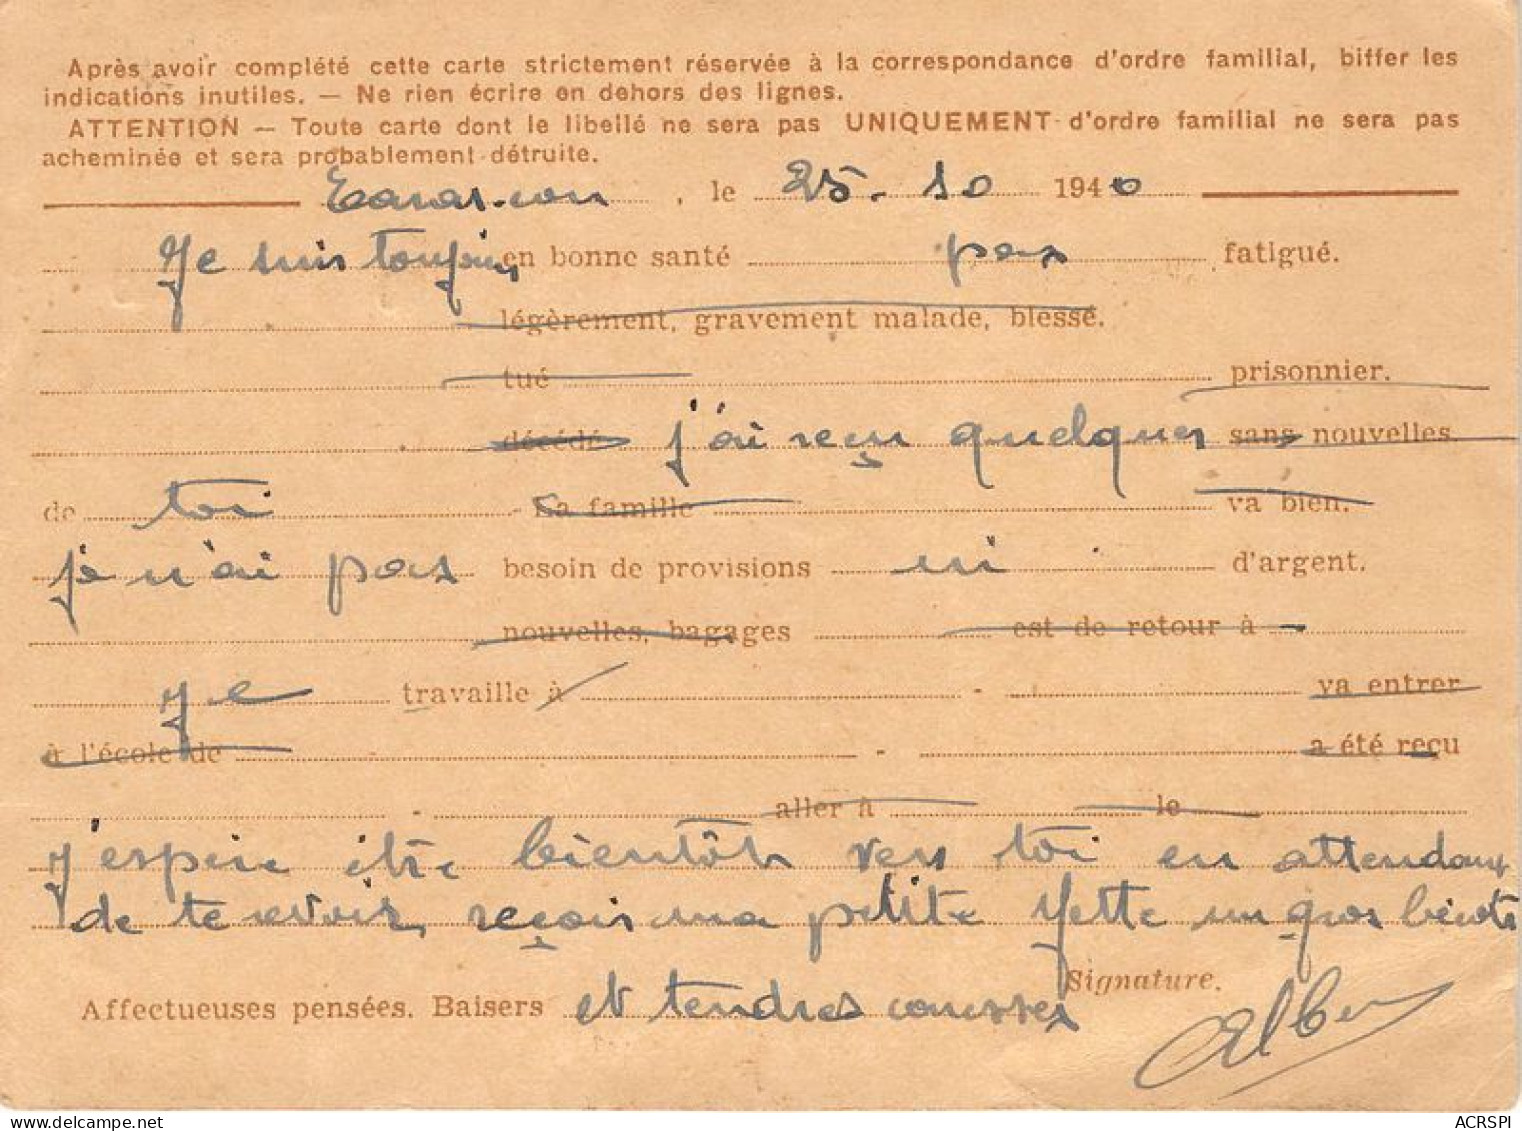 Après avoir complété cette carte strictement réservée à la correspondance d'ordre familial, biffer les
indications inutiles. — Ne rien écrire en dehors des lignes.
ATTENTION — Toute carte dont le libellé ne sera pas UNIQUEMENT d'ordre familial ne sera pas
acheminée et sera probablement détruite.
Tarascon, le 25-10 1940
Je suis toujours en bonne santé pas fatigué.
légèrement, gravement malade, blessé.
tué prisonnier.
décédé j'ai reçu quelques sans nouvelles.
de toi La famille va bien.
je n'ai pas besoin de provisions ni d'argent.
nouvelles, bagages est de retour à
Je travaille à - va entrer
à l'école de - a été reçu
- aller à le
J'espère être bientôt vers toi en attendant
de te revoir, reçois ma petite Yette un gros bécots
Signature.
Affectueuses pensées. Baisers et tendres caresses
Albert
ACRSPI